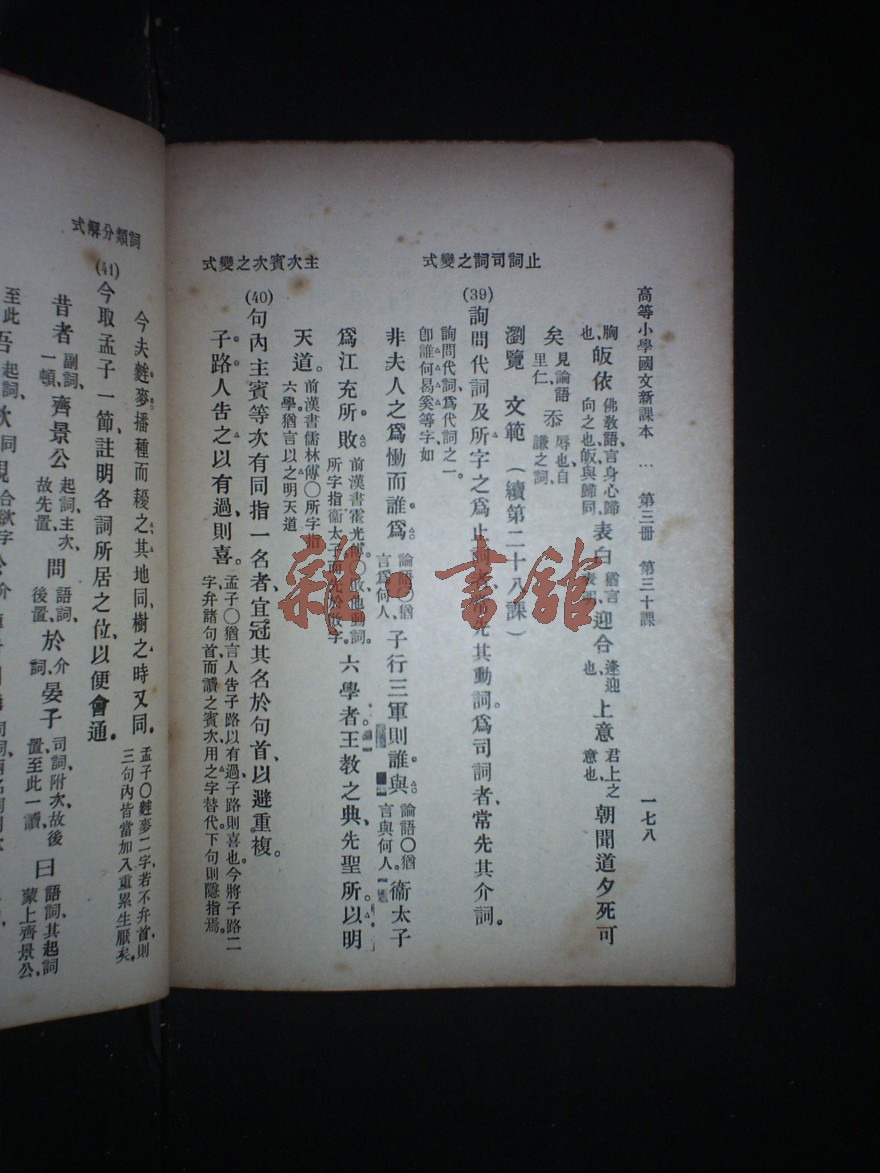 高等小學國文新課本 … 第三冊 第三十課 一七八
胸、皈依 佛敎語、言身心歸 表白 猶言 迎合 逢迎 上意 君上之 朝聞道夕死可
也、 向之也、皈與歸同、 也、 意也、
矣 見論語 忝 辱也、自
里仁 謙之詞、
瀏覽 文範 (續第二十八課)
止詞司詞之變式
(39)詢問代詞及所字之爲止詞者、常先其動詞。爲司詞者、常先其介詞。
詢問代詞、爲代詞之一。
卽誰何曷奚等字、如
非夫人之爲慟而誰爲。 論語〇猶 子行三軍則誰與。 論語〇猶 衞太子
言爲何人、 言與何人、
爲江充所敗。 前漢書霍光傳〇敗、他動詞。 六學者、王敎之典、先聖所以明
所字指衞太子、而先於敗字
天道。 前漢書儒林傳〇所字指
六學、猶言以之明天道
主次賓次之變式
(40)句內主賓等次有同指一名者、宜冠其名於句首、以避重複。
子路、人吿之以有過則喜。 孟子〇猶言人吿子路以有過、子路則喜也、今將子路二
字、弁諸句首、而讀之賓次用之字替代、下句則隱指焉。
今夫麰麥、播種而耰之、其地同、樹之時又同。 孟子〇麰麥二字、若不弁首、則
三句內皆當加入、重累生厭矣。
詞類分解式
(41)今取孟子一節、註明各詞所居之位、以便會通。
昔者 副詞、 齊景公 起詞、主次 問 語詞、 於 介 晏子 司詞、附次、故後 曰 語詞、其起詞
一頓、 故先置、 後置、 詞、 置、至此一讀、 蒙上齊景公、
至此 吾 起詞、